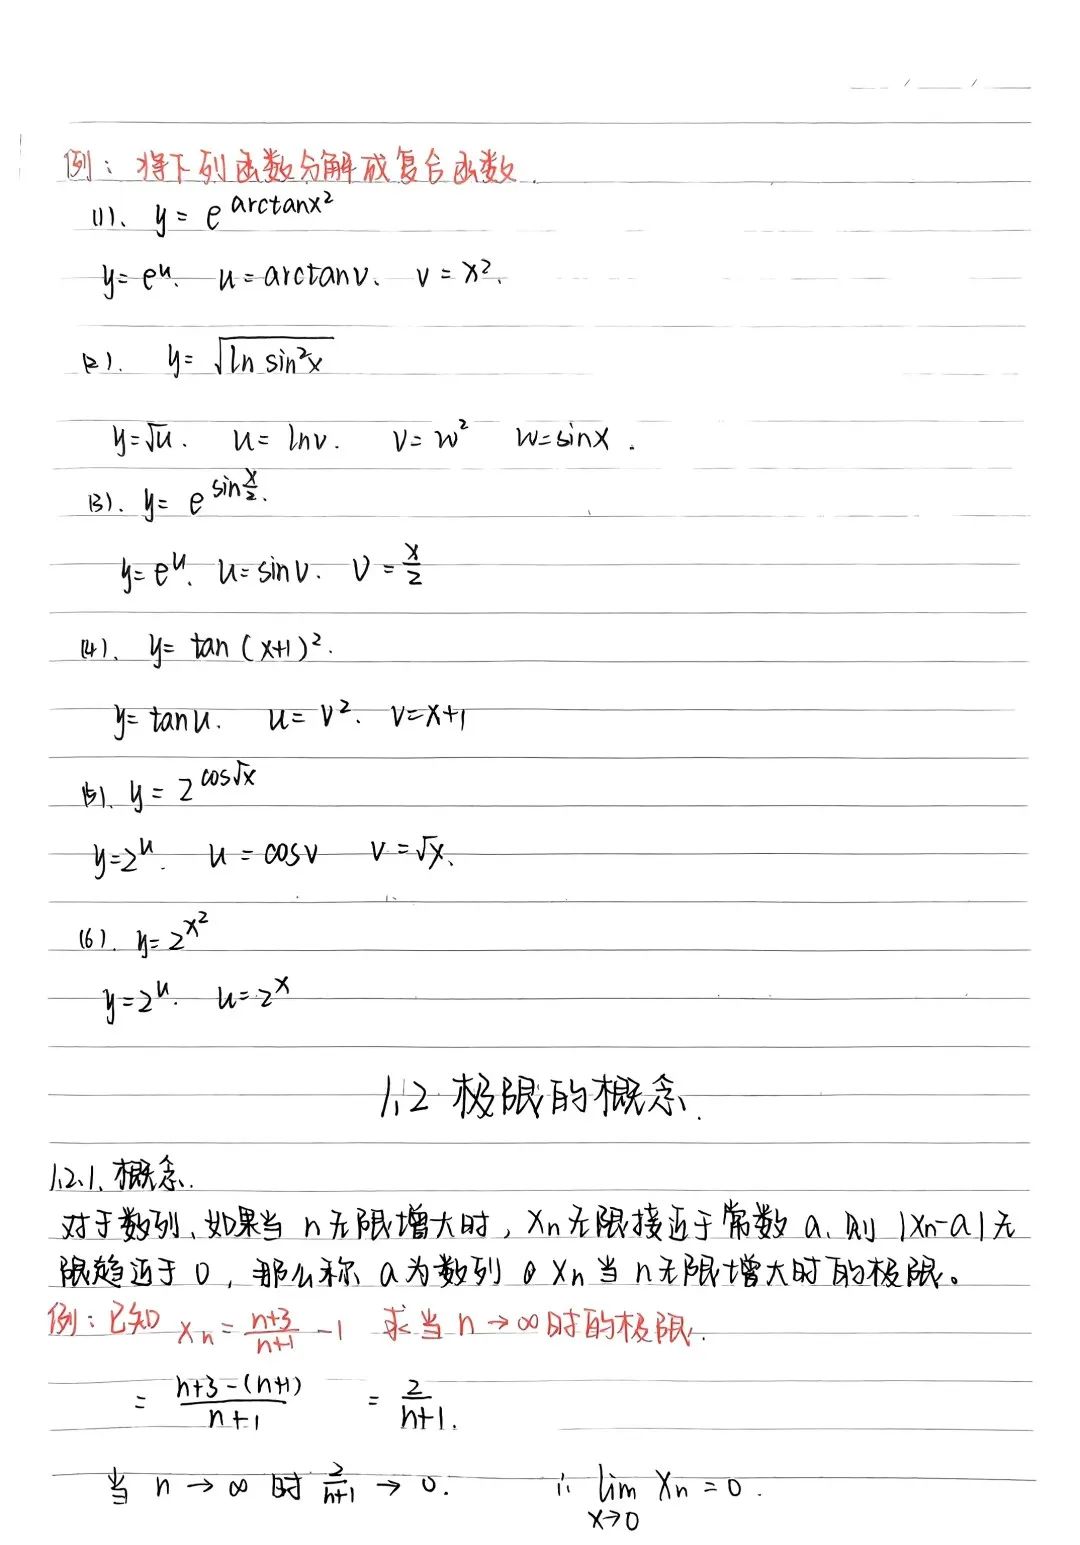 例：将下列函数分解成复合函数.
(1)、y = e^{arctanx²}
y=e^u. u=arctanv、 v=x².
(2). y=√(ln sin²x)
y=√u. u=lnv. v=w² w=sinx.
(3). y=e^{sin x/2}.
y=e^u、u=sinv. v=x/2
(4)、y=tan(x+1)².
y=tanu. u=v². v=x+1
(5)、y=2^{cos√x}
y=2^u. u=cosv v=√x、
(6). y=2^{x²}
y=2^u. u=2^x
1.2 极限的概念.
1.2.1、概念.
对于数列、如果当 n无限增大时，Xn无限接近于常数 a、则 |Xn-a|无
限趋近于0，那么称 a为数列 Xn当n无限增大时的极限。
例：已知 Xn=(n+3)/(n+1) -1 求当n→∞时的极限.
= (n+3-(n+1))/(n+1) = 2/(n+1).
当 n→∞ 时 2/(n+1) → 0. ∴ lim_{x→0} Xn=0.